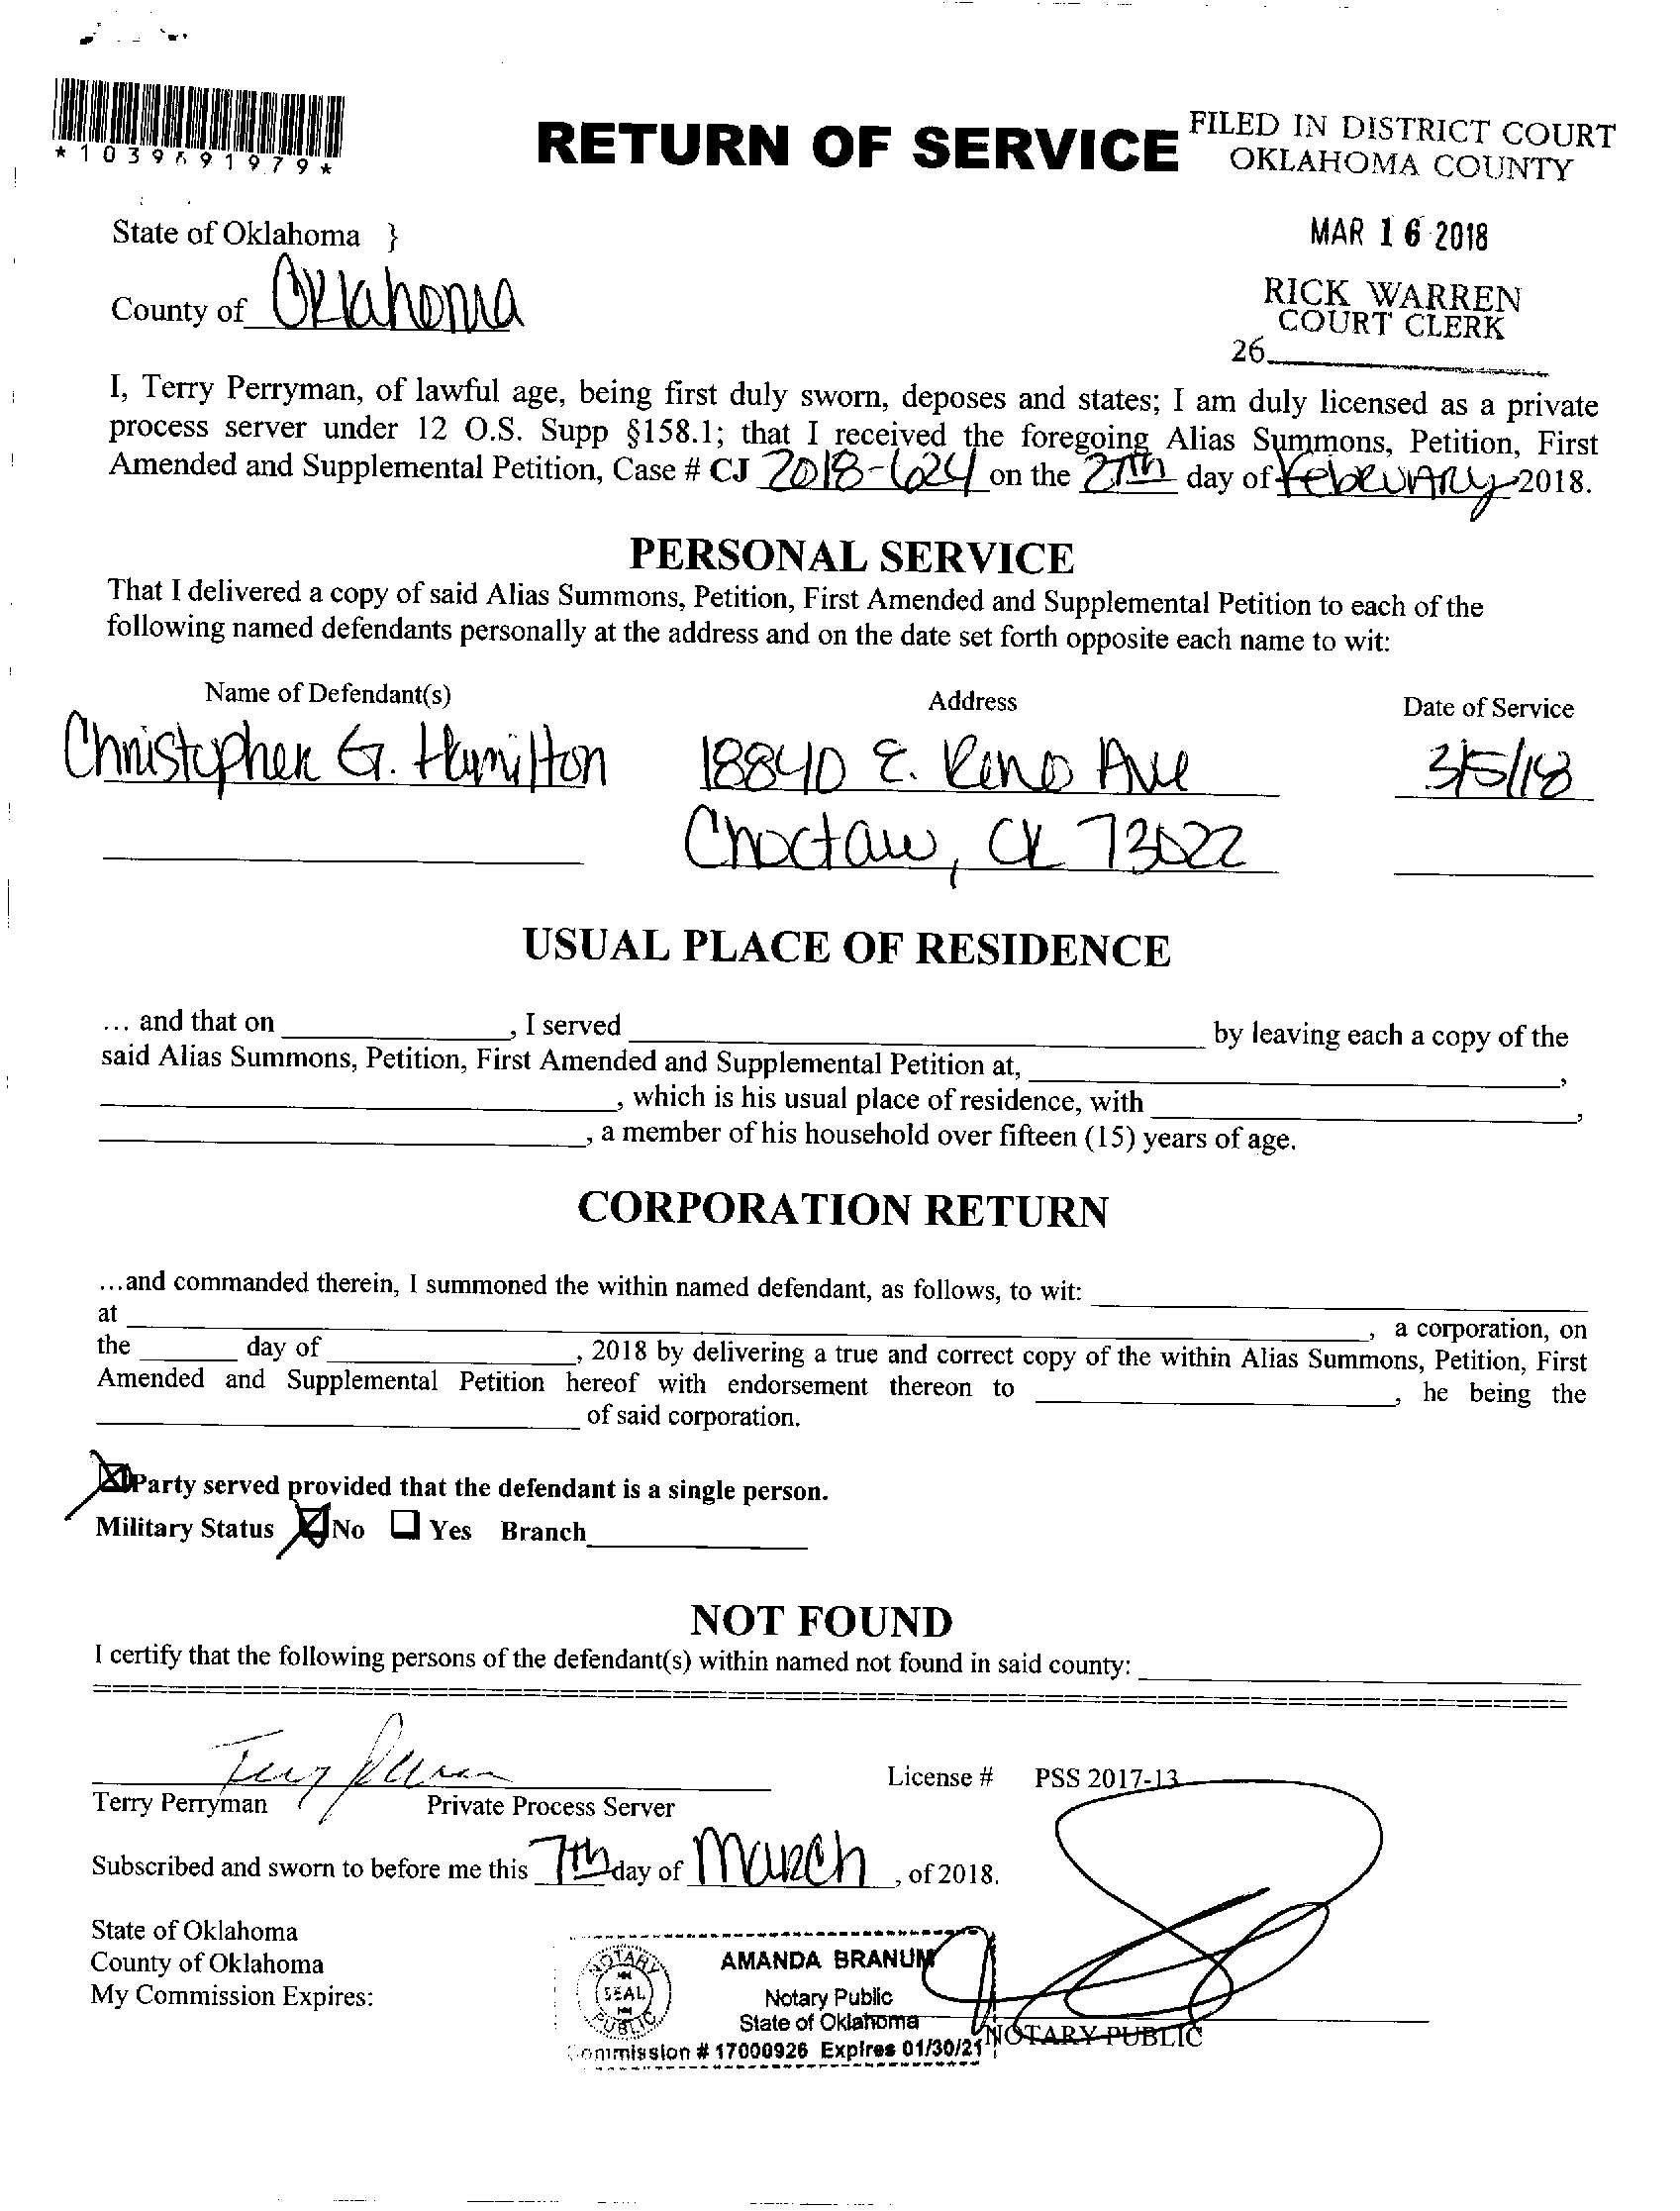 *1039691979*
RETURN OF SERVICE
FILED IN DISTRICT COURT
OKLAHOMA COUNTY
MAR 16 2018
RICK WARREN
COURT CLERK
26
State of Oklahoma }
County of Oklahoma
I, Terry Perryman, of lawful age, being first duly sworn, deposes and states; I am duly licensed as a private
process server under 12 O.S. Supp §158.1; that I received the foregoing Alias Summons, Petition, First
Amended and Supplemental Petition, Case # CJ 2018-624 on the 27th day of February 2018.
PERSONAL SERVICE
That I delivered a copy of said Alias Summons, Petition, First Amended and Supplemental Petition to each of the
following named defendants personally at the address and on the date set forth opposite each name to wit:
Name of Defendant(s) Address Date of Service
Christopher G. Hamilton 18840 E. Reno Ave 3/5/18
Choctaw, OK 73022
USUAL PLACE OF RESIDENCE
... and that on , I served by leaving each a copy of the
said Alias Summons, Petition, First Amended and Supplemental Petition at, ,
, which is his usual place of residence, with ,
, a member of his household over fifteen (15) years of age.
CORPORATION RETURN
...and commanded therein, I summoned the within named defendant, as follows, to wit:
at , a corporation, on
the day of , 2018 by delivering a true and correct copy of the within Alias Summons, Petition, First
Amended and Supplemental Petition hereof with endorsement thereon to , he being the
of said corporation.
Party served provided that the defendant is a single person.
Military Status No Yes Branch
NOT FOUND
I certify that the following persons of the defendant(s) within named not found in said county:
Terry Perryman License # PSS 2017-13
Terry Perryman Private Process Server
Subscribed and sworn to before me this 7th day of March, of 2018.
State of Oklahoma
County of Oklahoma
My Commission Expires:
NOTARY SEAL PUBLIC
AMANDA BRANUM
Notary Public
State of Oklahoma
Commission # 17000926 Expires 01/30/21
NOTARY PUBLIC